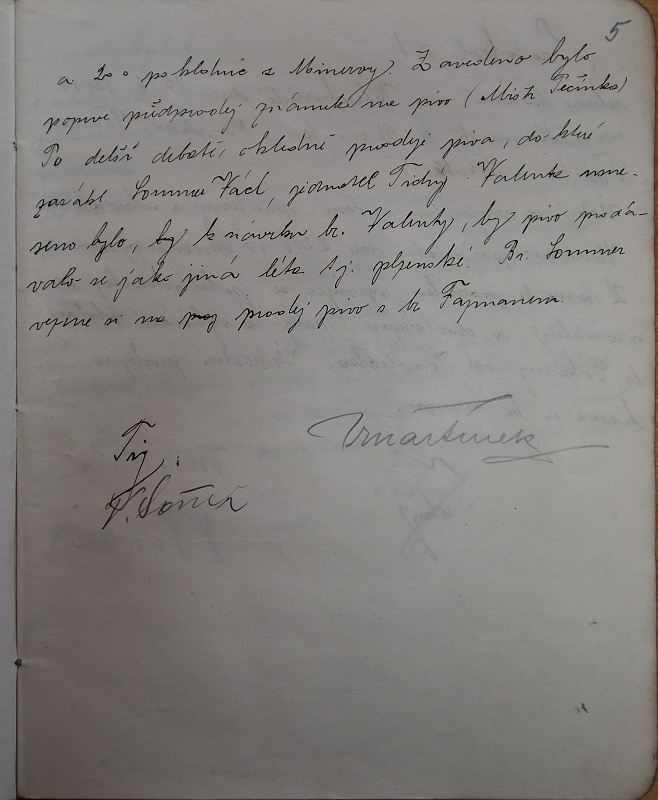 5
a 20 pokladnic z Minervy. Zavedeno bylo
poprvé předprodej známek na pivo (Mistr Pečinka)
Po delší debatě, ohledně prodeje piva, do které
zasáhl Sommer Václ, jednatel Tichý Valenta usne-
seno bylo, by k návrhu br. Valenty, by pivo prodá-
valo se jako jiná léta t.j. plzenské. Br. Sommer
vezme si na proj prodej pivo s br Fajmanem.
VMartínek